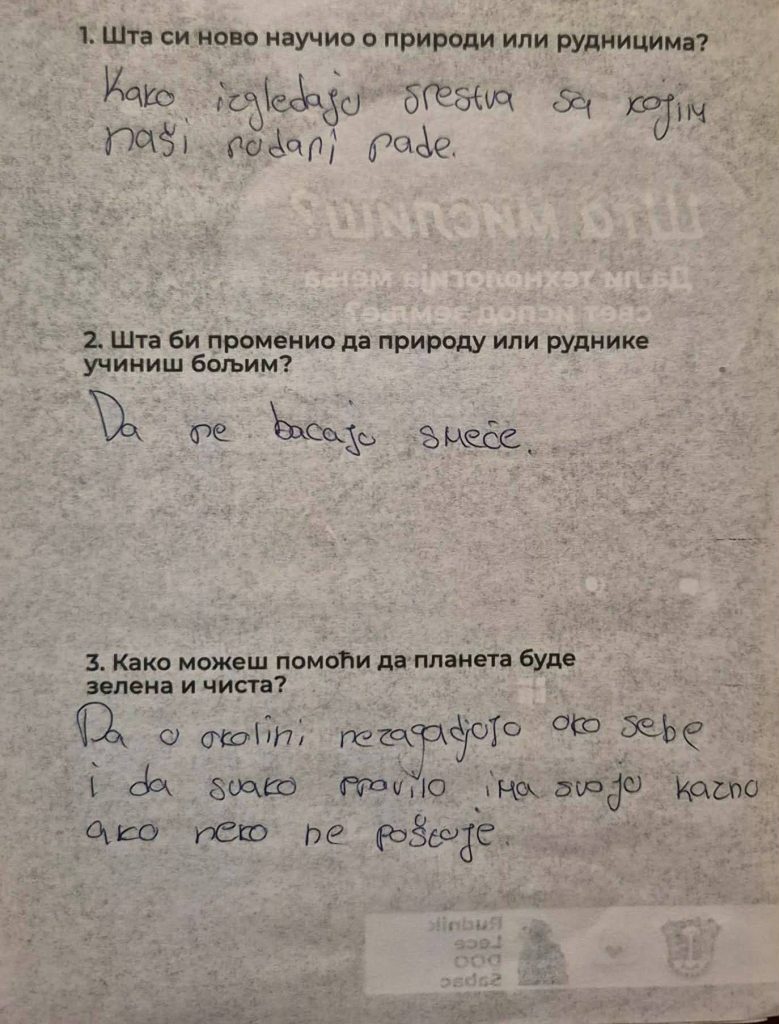 1. Шта си ново научио о природи или рудницима?
Kako izgledaju srestva sa kojim
naši rudari rade.
Шта мислиш?
Да ли технологија мења
свет испод земље?
2. Шта би променио да природу или руднике
учиниш бољим?
Da ne bacaju smeće.
3. Како можеш помоћи да планета буде
зелена и чиста?
Da u okolini nezagadjuju oko sebe
i da svako pravilo ima svoju kaznu
ako neko ne poštuje.
Rudnik
Lece
DOO
Sabac